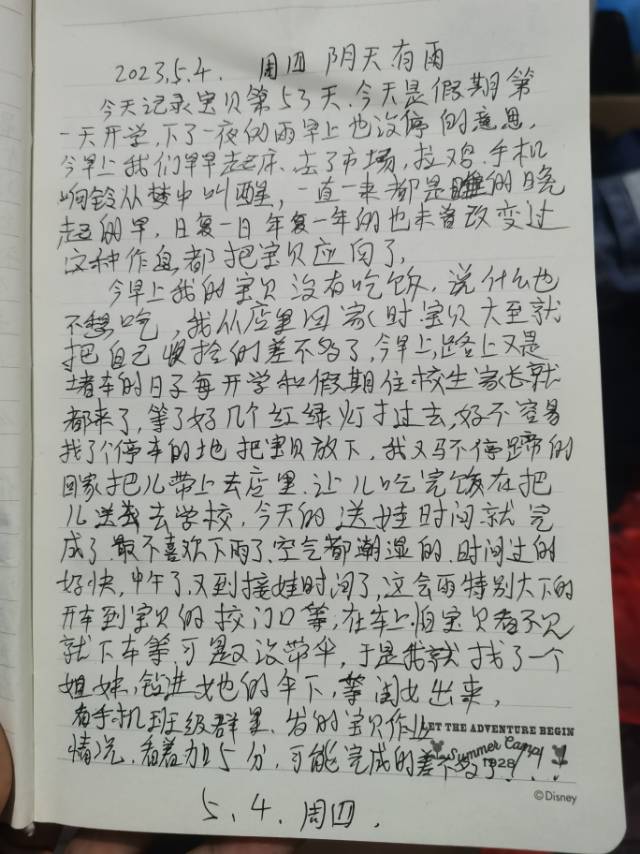 2023.5.4. 周四 阴天有雨
今天记录宝贝第53天.今天是假期第
一天开学,下了一夜的雨早上也没停的意思,
今早上我们早早起床、去了市场,拉鸡.手机
响铃从梦中叫醒,一直一来都是睡的晚
起的早,日复一日年复一年的也未曾改变过
这种作息都把宝贝应向了,
今早上我的宝贝没有吃饭,说什么也
不想吃,我从店里回家时宝贝大至就
把自己收拾的差不多了,今早上,路上又是
堵车的日子每开学和假期住校生家长就
都来了,等了好几个红绿灯才过去,好不容易
找了个停车的地把宝贝放下,我又马不停蹄的
回家把儿带上去店里.让儿吃完饭在把
儿送去学校,今天的送娃时间就完
成了.最不喜欢下雨了,空气都潮湿的.时间过的
好快,中午了,又到接娃时间了,这会雨特别大下的
开车到宝贝的校门口等,在车上怕宝贝看不见
就下车等可是又没带伞,于是我就找了一个
姐妹,钻进她的伞下,等闺女出来,
看手机班级群里.发的宝贝作业
情况,看着加5分,可能完成的差不多了!!...
LET THE ADVENTURE BEGIN
Summer Camp
1928
©Disney
5.4.周四.